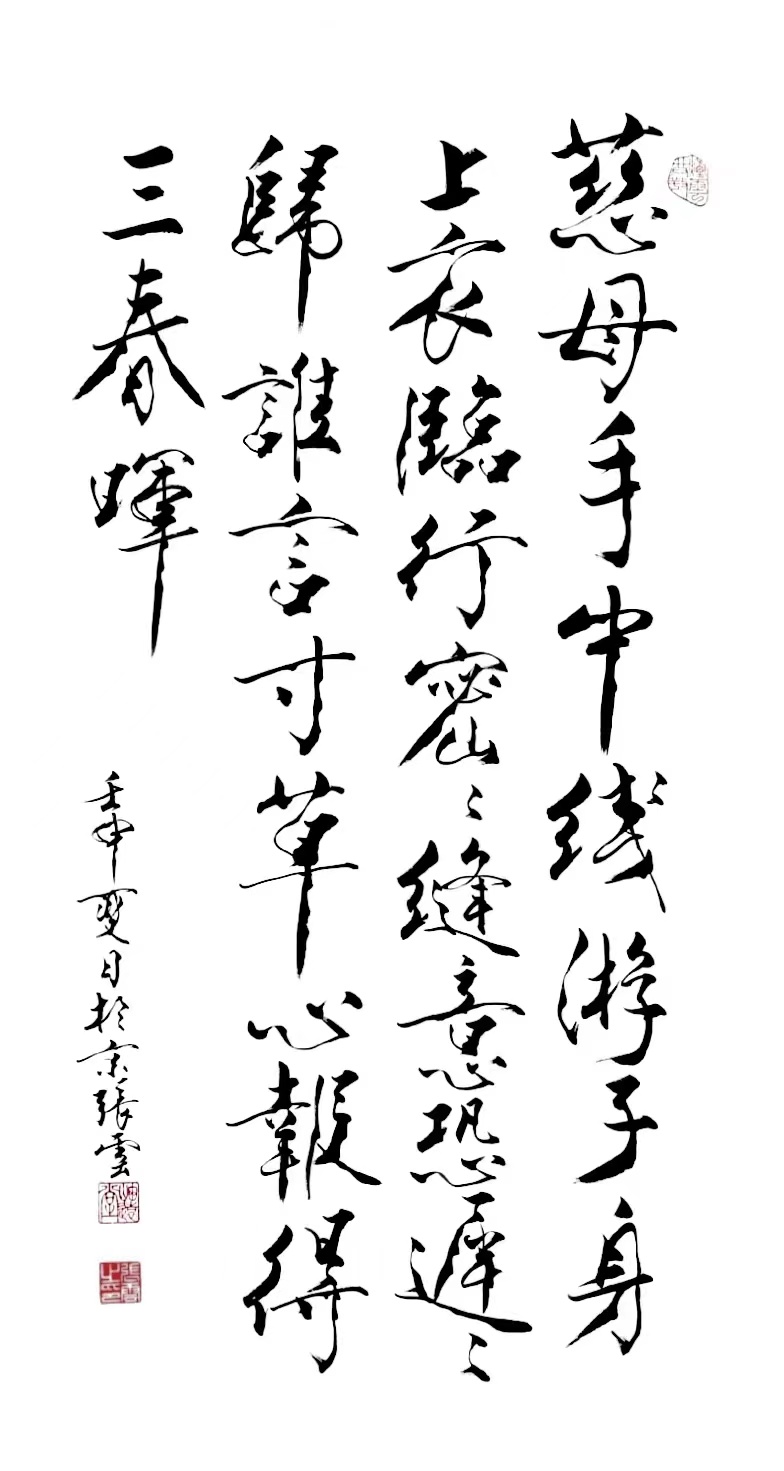 慈母手中线游子身
上衣臨行密〻縫意恐遲〻
歸誰言寸草心報得
三春暉
壬申夏日於京張雲